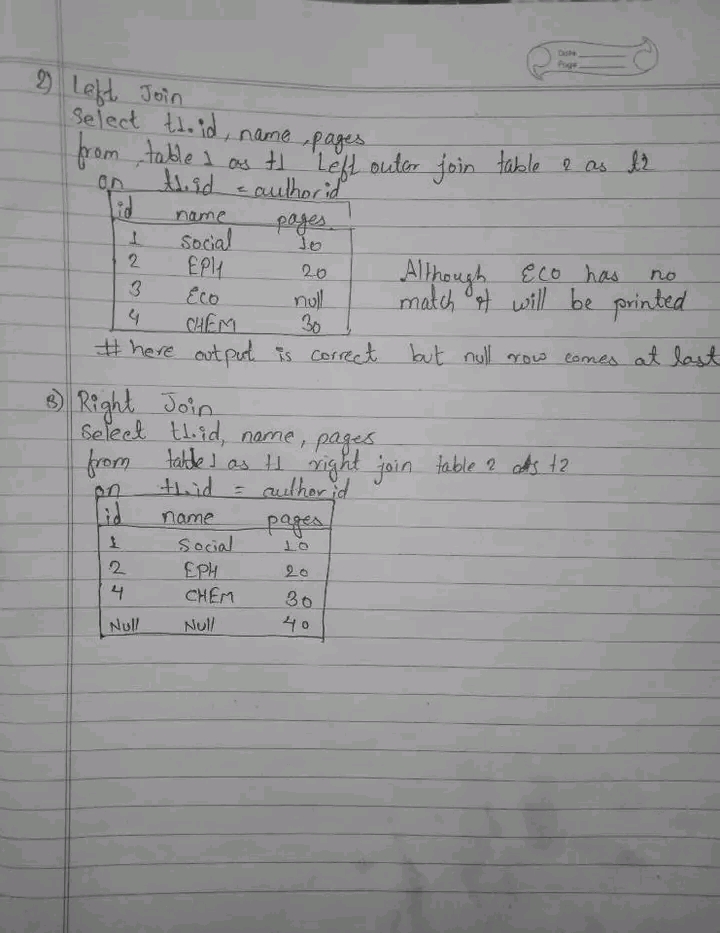 Date
Page
2) Left Join
Select t1.id, name, pages
from table 1 as t1 Left outer join table 2 as t2
on t1.id = authorid
id name pages
1 Social 10
2 EPH 20
3 Eco null
4 CHEM 30
Although Eco has no
match it will be printed
# here output is correct but null row comes at last
3) Right Join
Select t1.id, name, pages
from table 1 as t1 right join table 2 as t2
on t1.id = authorid
id name pages
1 Social 10
2 EPH 20
4 CHEM 30
Null Null 40